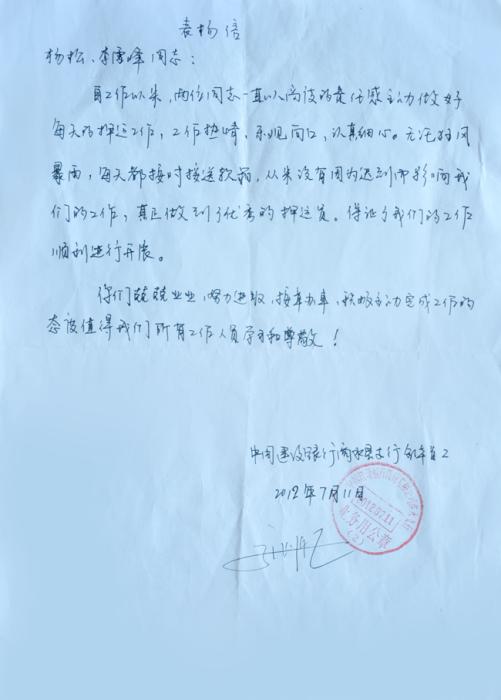 表扬信
杨松、李雪峰同志：
自工作以来，两位同志一直以高度的责任感主动做好
每天的押运工作，工作热情、乐观向上，认真细心。无论狂风
暴雨，每天都按时接送款项，从来没有因为迟到而影响我
们的工作，真正做到了优秀的押运员。保证了我们的工作
顺利进行开展。
你们兢兢业业，努力进取，按章办事，积极主动完成工作的
态度值得我们所有工作人员学习和尊敬！
中国建设银行商水县支行全体员工
2012年7月11日
2012.07.11
业务用公章
(2)